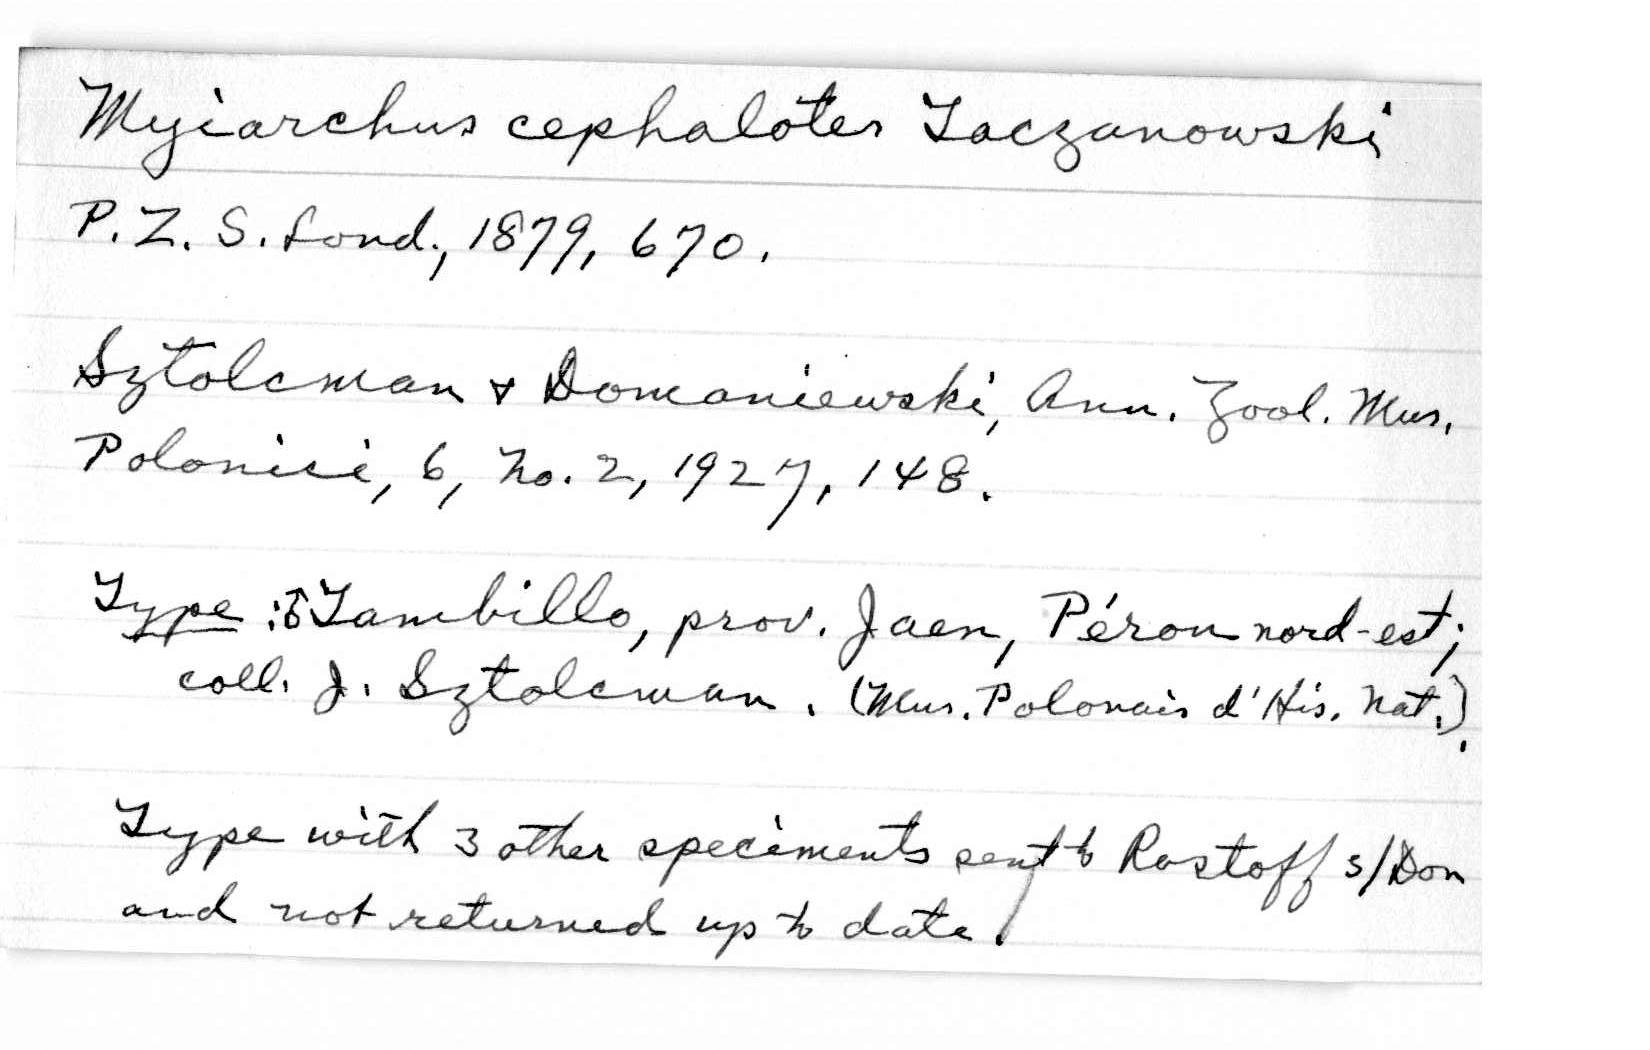 Myiarchus cephalotes Taczanowski
P. Z. S. Lond., 1879, 670.
Sztolcman & Domaniewski, Ann. Zool. Mus.
Polonici, 6, no. 2, 1927, 148.
Type : ♂ Tambillo, prov. Jaen, Pérou nord-est;
coll. J. Sztolcman. (Mus. Polonais d'His. Nat.).
Type with 3 other speciments sent to Rostoff s/Don
and not returned up to date.